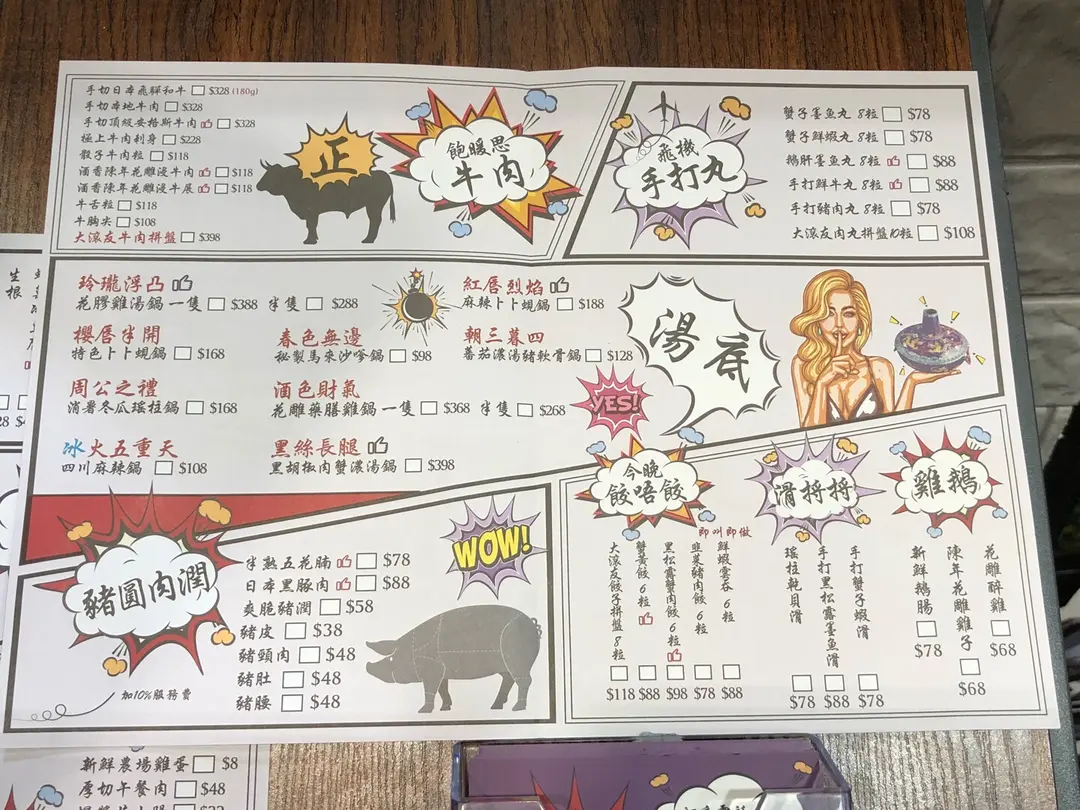 手切日本飛驒和牛 $328 (180g)
手切本地牛肉 $328
手切頂級安格斯牛肉 $328
極上牛肉刺身 $228
骰子牛肉粒 $118
酒香陳年花雕浸牛肉 $118
酒香陳年花雕浸牛展 $118
牛舌粒 $118
牛胸尖 $108
大滾友牛肉拼盤 $398
正
飽暖思
牛肉
飛機
手打丸
蟹子墨魚丸 8粒 $78
蟹子鮮蝦丸 8粒 $78
鵝肝墨魚丸 8粒 $88
手打鮮牛丸 8粒 $88
手打豬肉丸 8粒 $78
大滾友肉丸拼盤10粒 $108
玲瓏浮凸
花膠雞湯鍋 一隻 $388 半隻 $288
紅唇烈焰
麻辣卜卜蜆鍋 $188
櫻唇半開
特色卜卜蜆鍋 $168
春色無邊
秘製馬來沙嗲鍋 $98
朝三暮四
蕃茄濃湯豬軟骨鍋 $128
周公之禮
消暑冬瓜瑤柱鍋 $168
酒色財氣
花雕藥膳雞鍋 一隻 $368 半隻 $268
冰火五重天
四川麻辣鍋 $108
黑絲長腿
黑胡椒肉蟹濃湯鍋 $398
湯底
YES!
豬圓肉潤
半熟五花腩 $78
日本黑豚肉 $88
爽脆豬潤 $58
豬皮 $38
豬頸肉 $48
豬肚 $48
豬腰 $48
加10%服務費
WOW!
今晚
餃唔餃
即叫即做
大滾友餃子拼盤 8粒 $118
蟹黃餃 6粒 $88
黑松露蟹肉餃 6粒 $98
韭菜豬肉餃 6粒 $78
鮮蝦雲吞 6粒 $88
滑捋捋
瑤柱乾貝滑 $78
手打黑松露墨魚滑 $88
手打蟹子蝦滑 $78
雞鵝
新鮮鵝腸 $78
陳年花雕雞子 $68
花雕醉雞 $68
生根
新鮮農場雞蛋 $8
厚切午餐肉 $48